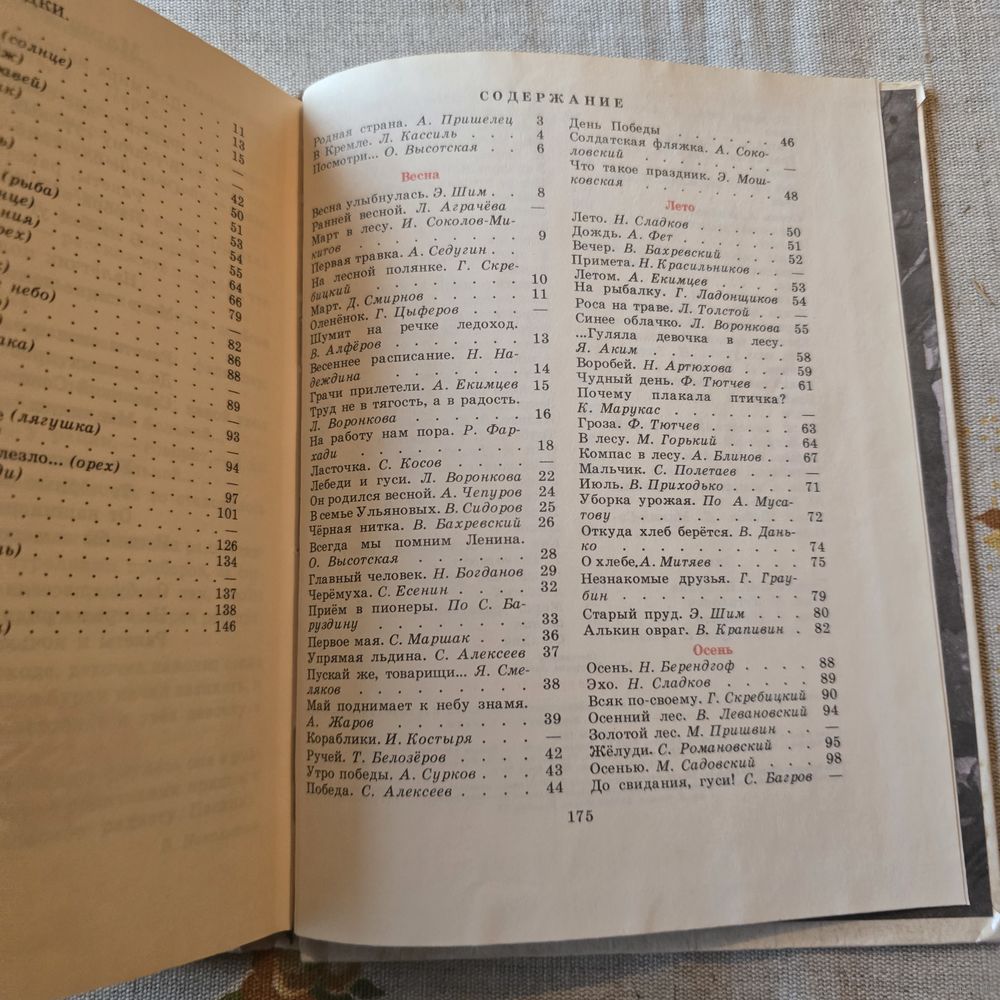 (солнце)
11
13
15
(рыба)
42
50
51
53
54
55
64
небо)
66
79
82
86
88
89
(лягушка)
93
(орех)
94
97
101
126
134
—
137
138
146
СОДЕРЖАНИЕ
Родная страна. А. Пришелец 3
В Кремле. Л. Кассиль . . . 4
Посмотри... О. Высотская . . 6
Весна
Весна улыбнулась. Э. Шим . . 8
Ранней весной. Л. Аграчёва —
Март в лесу. И. Соколов-Ми-
китов . . . . . . . . . 9
Первая травка. А. Седугин . —
На лесной полянке. Г. Скре-
бицкий . . . . . . . . 10
Март. Д. Смирнов . . . . 11
Оленёнок. Г. Цыферов . . . —
Шумит на речке ледоход.
В. Алфёров . . . . . . 13
Весеннее расписание. Н. На-
деждина . . . . . . . 14
Грачи прилетели. А. Екимцев 15
Труд не в тягость, а в радость.
Л. Воронкова . . . . . . 16
На работу нам пора. Р. Фар-
хади . . . . . . . . . 18
Ласточка. С. Косов . . . . —
Лебеди и гуси. Л. Воронкова 22
Он родился весной. А. Чепуров 24
В семье Ульяновых. В. Сидоров 25
Чёрная нитка. В. Бахревский 26
Всегда мы помним Ленина.
О. Высотская . . . . . . 28
Главный человек. Н. Богданов 29
Черёмуха. С. Есенин . . . . 32
Приём в пионеры. По С. Ба-
руздину . . . . . . . . 33
Первое мая. С. Маршак . . . 36
Упрямая льдина. С. Алексеев 37
Пускай же, товарищи... Я. Сме-
ляков . . . . . . . . . 38
Май поднимает к небу знамя.
А. Жаров . . . . . . . 39
Кораблики. И. Костыря . . . —
Ручей. Т. Белозёров . . . . 42
Утро победы. А. Сурков . . . 43
Победа. С. Алексеев . . . . 44
День Победы . . . . . . 46
Солдатская фляжка. А. Соко-
ловский . . . . . . . —
Что такое праздник. Э. Мош-
ковская . . . . . . . 48
Лето
Лето. Н. Сладков . . . . . 50
Дождь. А. Фет . . . . . . 51
Вечер. В. Бахревский . . . . 52
Примета. Н. Красильников . . —
Летом. А. Екимцев . . . . 53
На рыбалку. Г. Ладонщиков 54
Роса на траве. Л. Толстой . . —
Синее облачко. Л. Воронкова 55
...Гуляла девочка в лесу.
Я. Аким . . . . . . . . 58
Воробей. Н. Артюхова . . . 59
Чудный день. Ф. Тютчев . . 61
Почему плакала птичка?
К. Марукас . . . . . . . —
Гроза. Ф. Тютчев . . . . . 63
В лесу. М. Горький . . . . 64
Компас в лесу. А. Блинов . . 67
Мальчик. С. Полетаев . . . —
Июль. В. Приходько . . . . 71
Уборка урожая. По А. Муса-
тову . . . . . . . . . 72
Откуда хлеб берётся. В. Дань-
ко . . . . . . . . . . 74
О хлебе. А. Митяев . . . . 75
Незнакомые друзья. Г. Грау-
бин . . . . . . . . . . 79
Старый пруд. Э. Шим . . . 80
Алькин овраг. В. Крапивин . 82
Осень
Осень. Н. Берендгоф . . . . 88
Эхо. Н. Сладков . . . . . 89
Всяк по-своему. Г. Скребицкий 90
Осенний лес. В. Левановский 94
Золотой лес. М. Пришвин . . —
Жёлуди. С. Романовский . . 95
Осенью. М. Садовский . . . 98
До свидания, гуси! С. Багров —
175